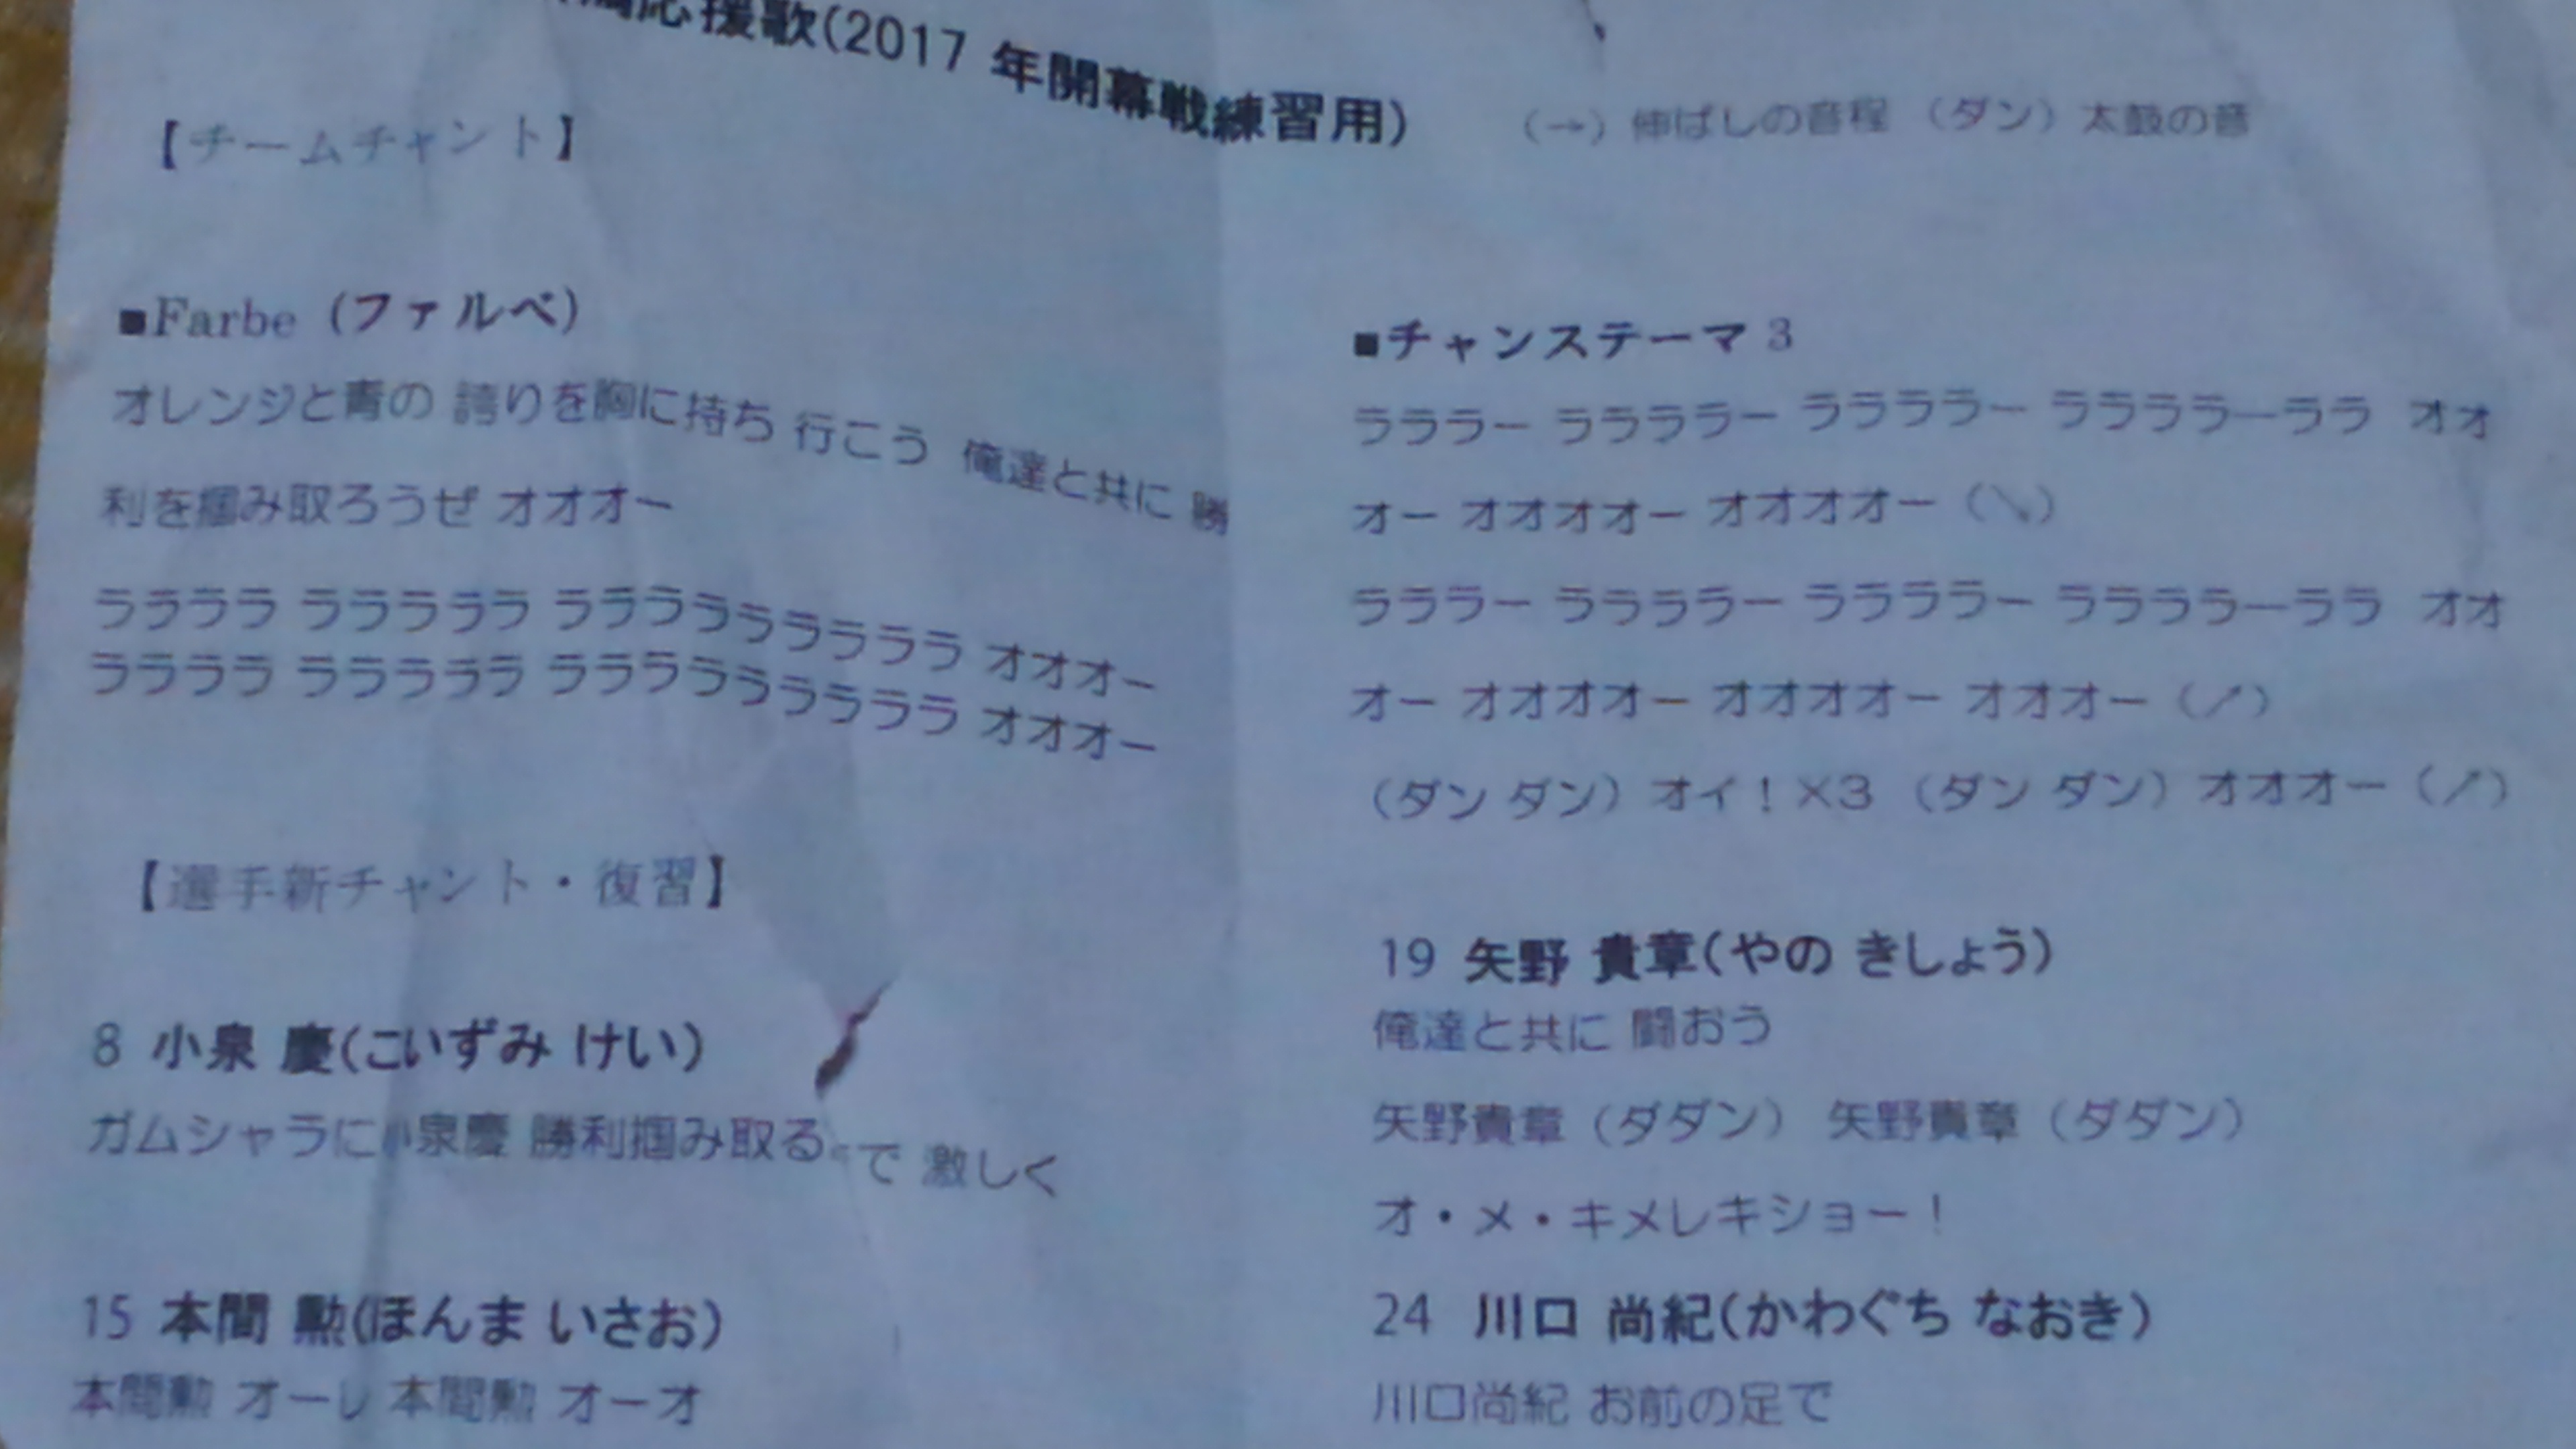 応援歌(2017 年開幕戦練習用)
(→) 伸ばしの音程 (ダン) 太鼓の音
【チームチャント】
■Farbe (ファルベ)
オレンジと青の 誇りを胸に持ち 行こう 俺達と共に 勝
利を掴み取ろうぜ オオオー
ララララ ラララララ ララララララララララ オオオー
ララララ ラララララ ララララララララララ オオオー
■チャンステーマ 3
ラララー ララララー ララララー ララララーララ オオ
オー オオオオー オオオオー (↘)
ラララー ララララー ララララー ララララーララ オオ
オー オオオオー オオオオー オオオー (↗)
(ダン ダン) オイ！×3 (ダン ダン) オオオー (↗)
【選手新チャント・復習】
8 小泉 慶(こいずみ けい)
ガムシャラに小泉慶 勝利掴み取る で 激しく
15 本間 勲(ほんま いさお)
本間勲 オーレ 本間勲 オーオ
19 矢野 貴章(やの きしょう)
俺達と共に 闘おう
矢野貴章 (ダダン) 矢野貴章 (ダダン)
オ・メ・キメレキショー！
24 川口 尚紀(かわぐち なおき)
川口尚紀 お前の足で